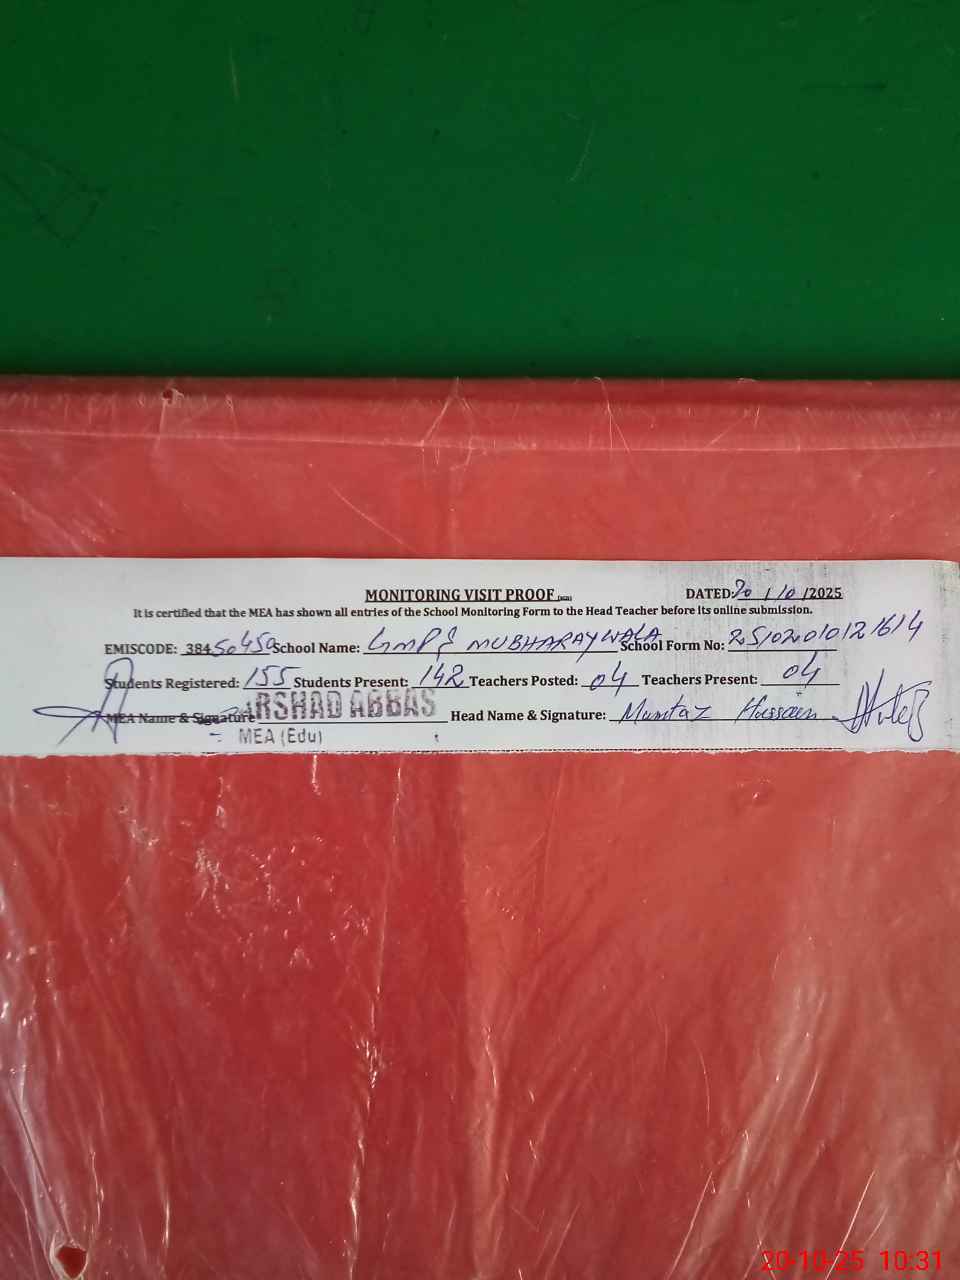 MONITORING VISIT PROOF DATED: 20/10/2025
It is certified that the MEA has shown all entries of the School Monitoring Form to the Head Teacher before its online submission.
EMISCODE: 38450450 School Name: GMPS MUBHARAYWALA School Form No: 25102010121614
Students Registered: 155 Students Present: 142 Teachers Posted: 04 Teachers Present: 04
MEA Name & Signature ARSHAD ABBAS Head Name & Signature: Mumtaz Hussain
MEA (Edu)
20-10-25 10:31